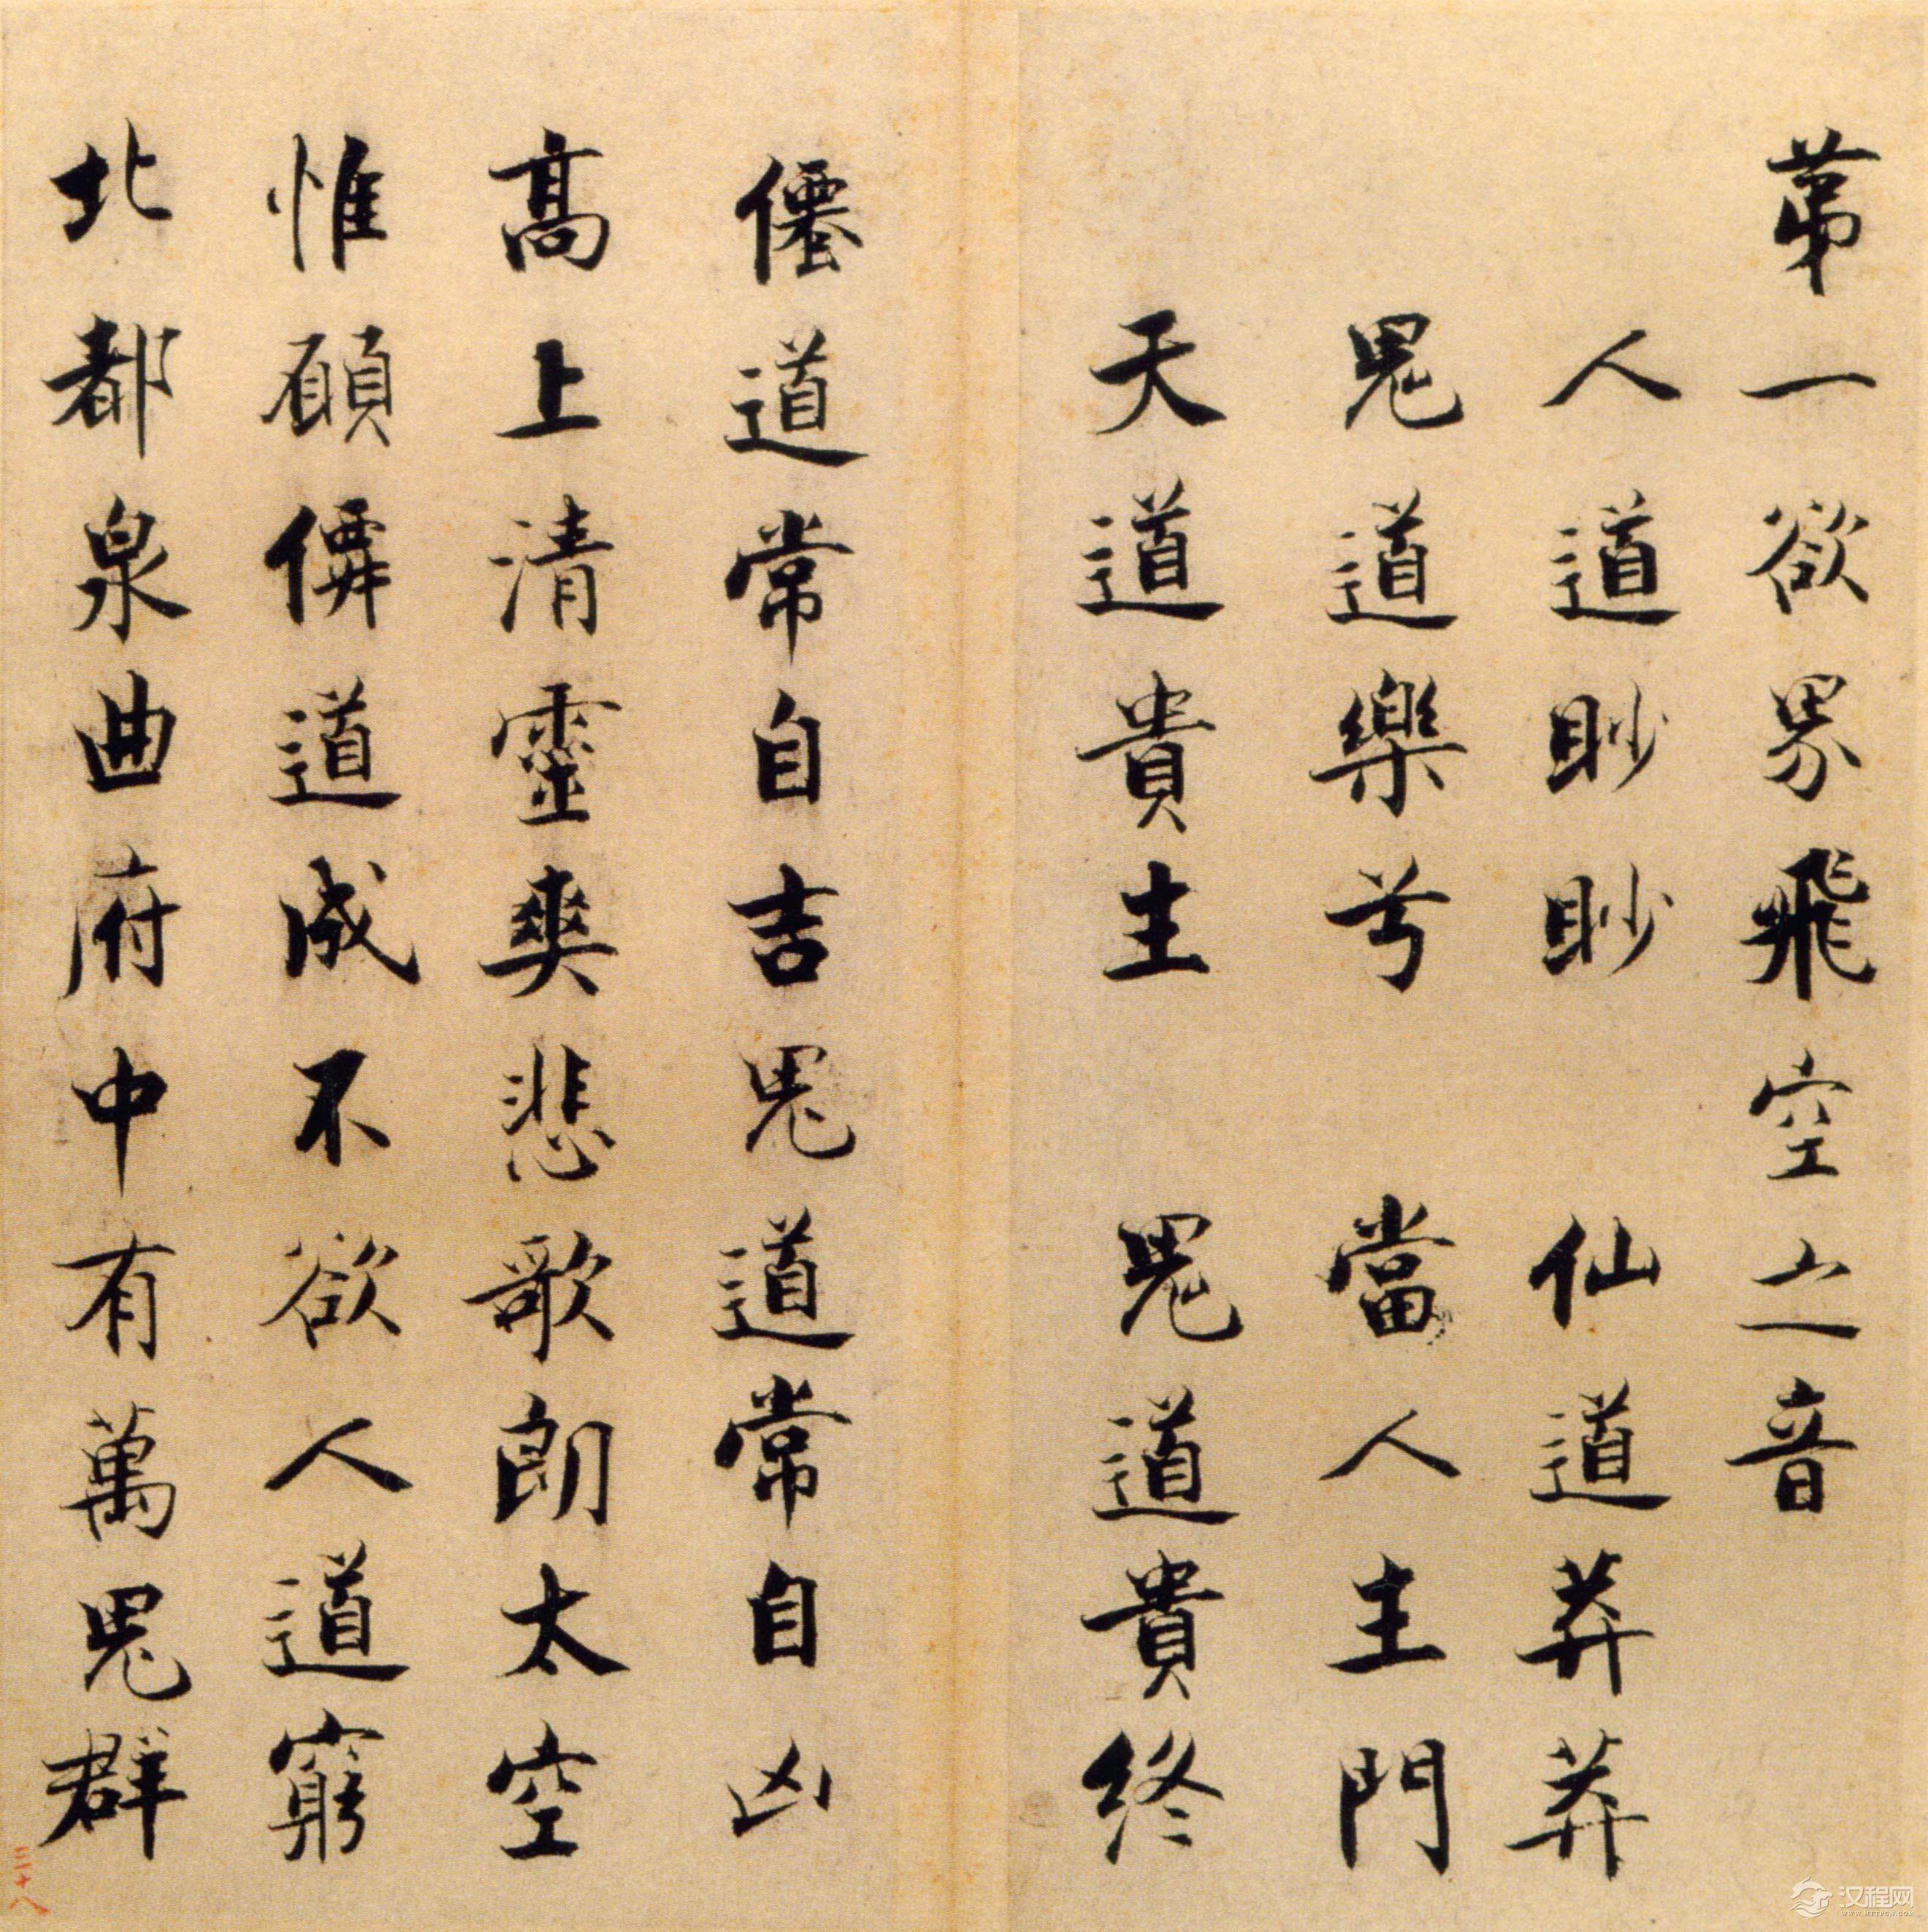 第一欲界飛空之音
人道眇眇　仙道莽莽
鬼道樂兮　當人主門
天道貴主　鬼道貴終
僊道常自吉鬼道常自凶
高上清靈爽悲歌朗太空
惟願僊道成不欲人道窮
北都泉曲府中有萬鬼群
三十八
汉程网
WWW.HTTPCN.COM